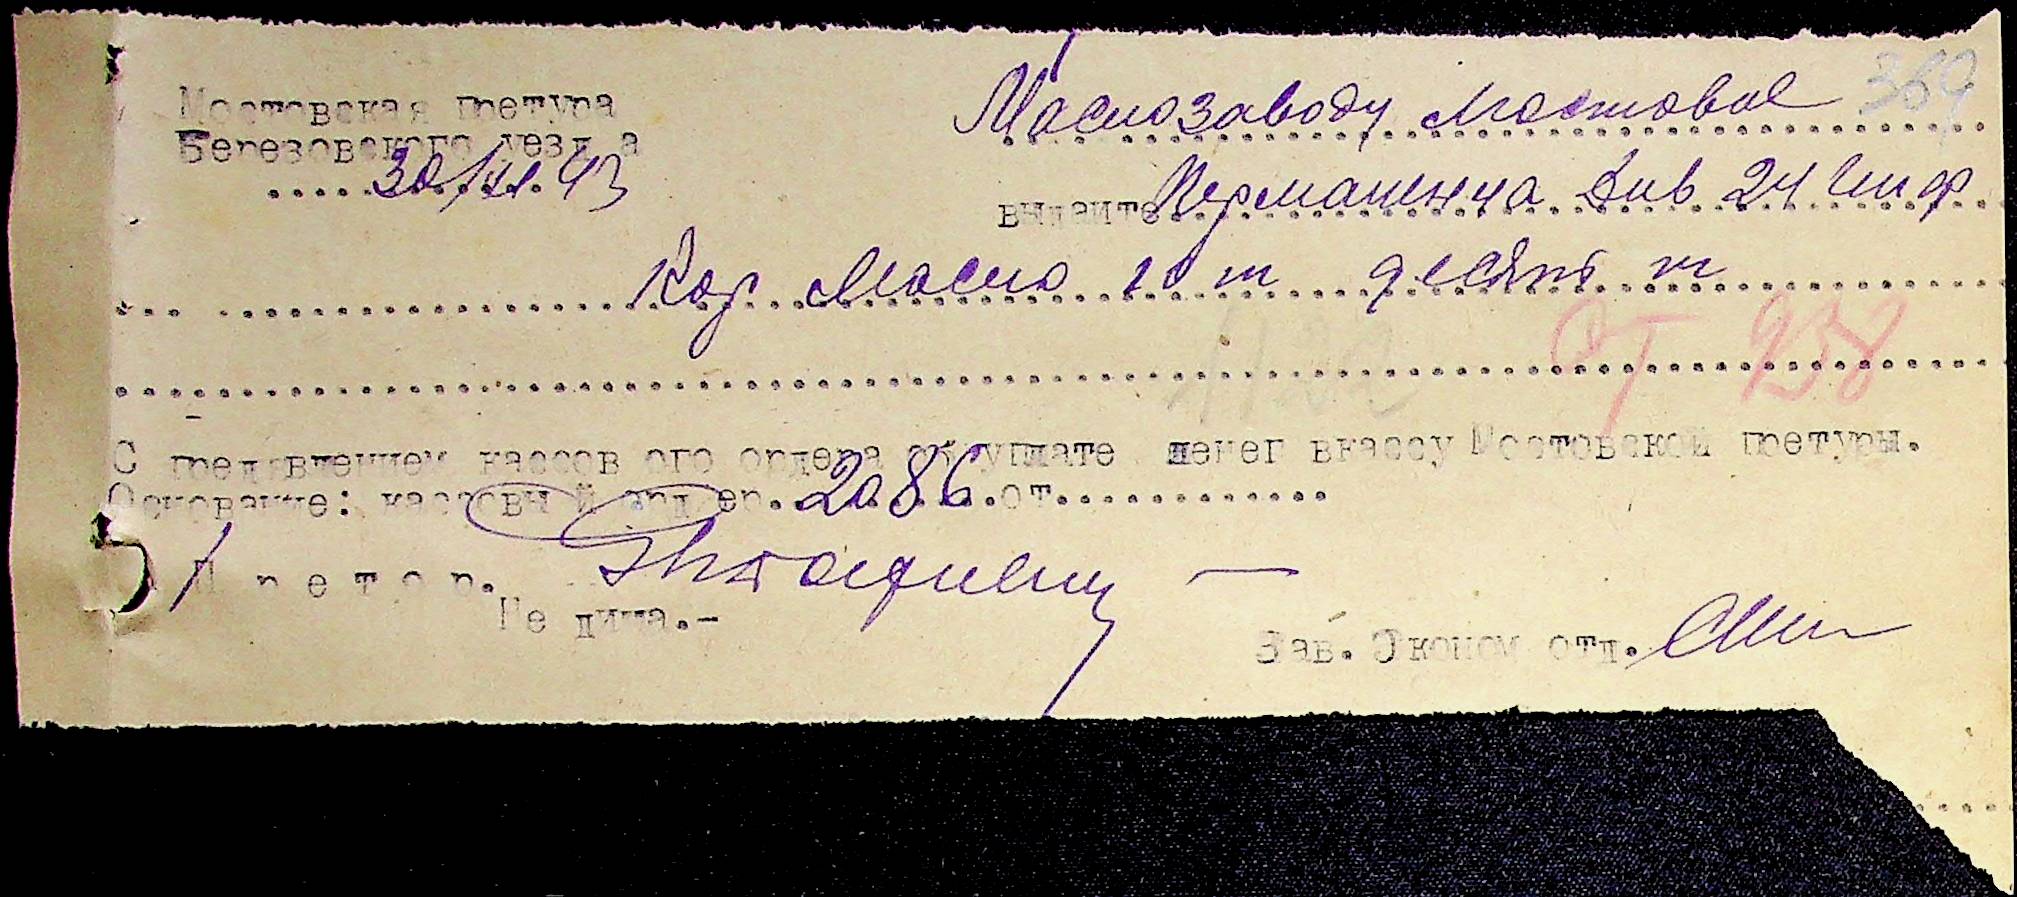 Мостовская претура
Березовского уезд а
....30/XI.43
369
Маслозаводу Мостовое
выдаите Перманенча Див 24 Инф
Кор Масло 10 т десять т
1122
ОТ 938
С пред'явлением кассов ого ордера об уплате денег вкассу Мостовской претуры.
Основание: кассовы й орд ер. 2086. от.............
П р е т о р.
Зав. Эконом отд.